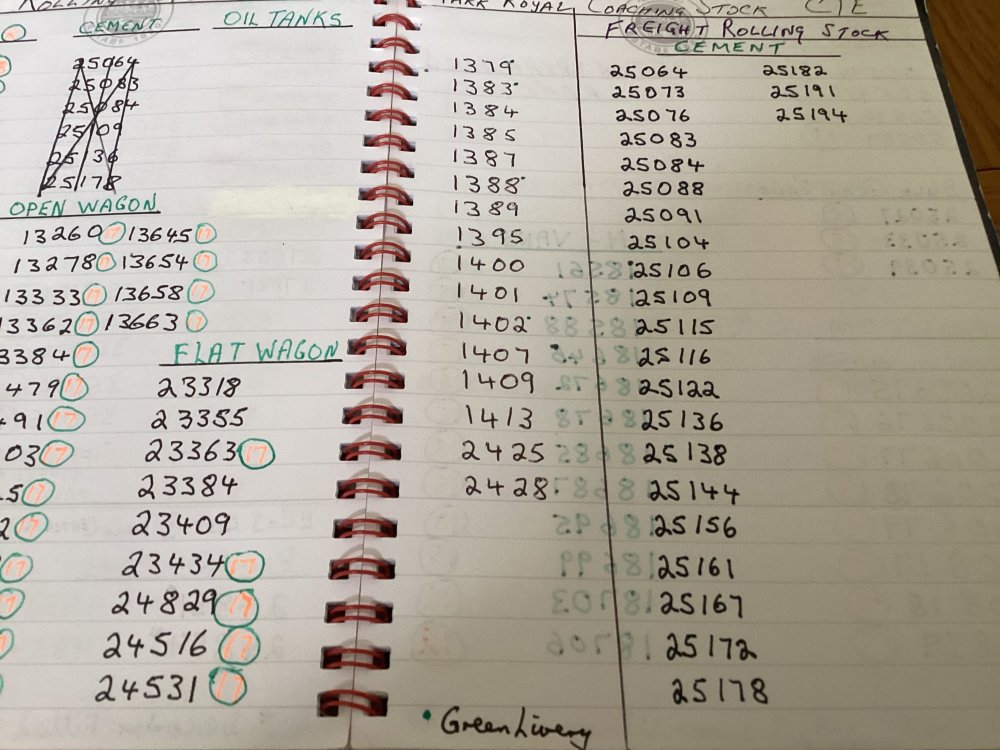 ROLLING
CEMENT
OIL TANKS
25064
25083
25084
25109
25136
25178
OPEN WAGON
13260 17 13645 17
13278 17 13654 17
13333 17 13658 17
13362 17 13663 17
3384 17
479 17
491 17
03 17
5 17
2 17
17
FLAT WAGON
23318
23355
23363 17
23384
23409
23434 17
24829 17
24516 17
24531 17
PARK ROYAL COACHING STOCK CIE
1379
1383
1384
1385
1387
1388
1389
1395
1400
1401
1402
1407
1409
1413
2425
2428
• Green Livery
FREIGHT ROLLING STOCK
CEMENT
25064 25182
25073 25191
25076 25194
25083
25084
25088
25091
25104
25106
25109
25115
25116
25122
25136
25138
25144
25156
25161
25167
25172
25178